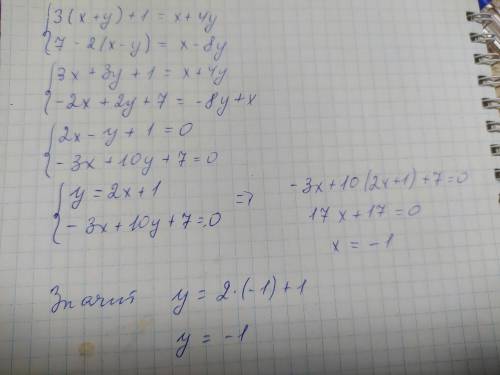 {3(x+y)+1 = x+4y
{7-2(x-y) = x-8y
{3x+3y+1 = x+4y
{-2x+2y+7 = -8y+x
{2x-y+1=0
{-3x+10y+7=0
{y=2x+1
{-3x+10y+7=0 =>
-3x+10(2x+1)+7=0
17x+17=0
x = -1
Значит y = 2·(-1)+1
y = -1